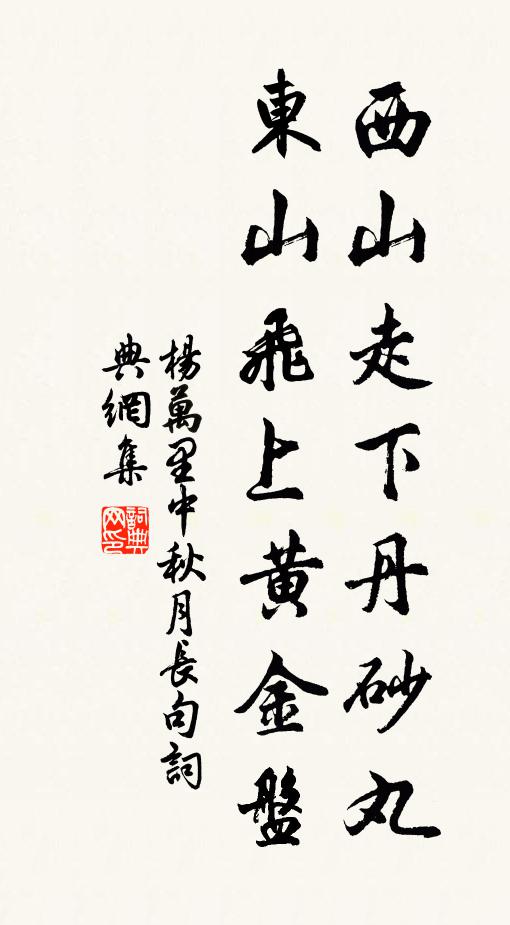 西山走下丹砂丸
東山飛上黄金盤
楊萬里中秋月長句詞
典網集
詞典
网印